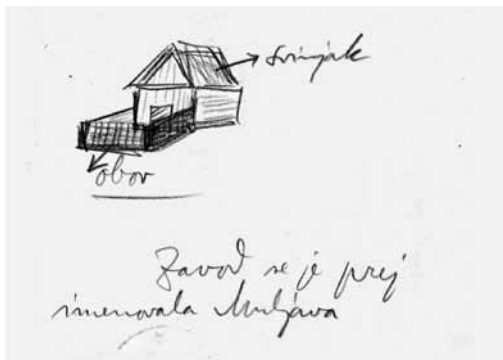 svinjak
obor
Zavod se je prej
imenovala Muljava